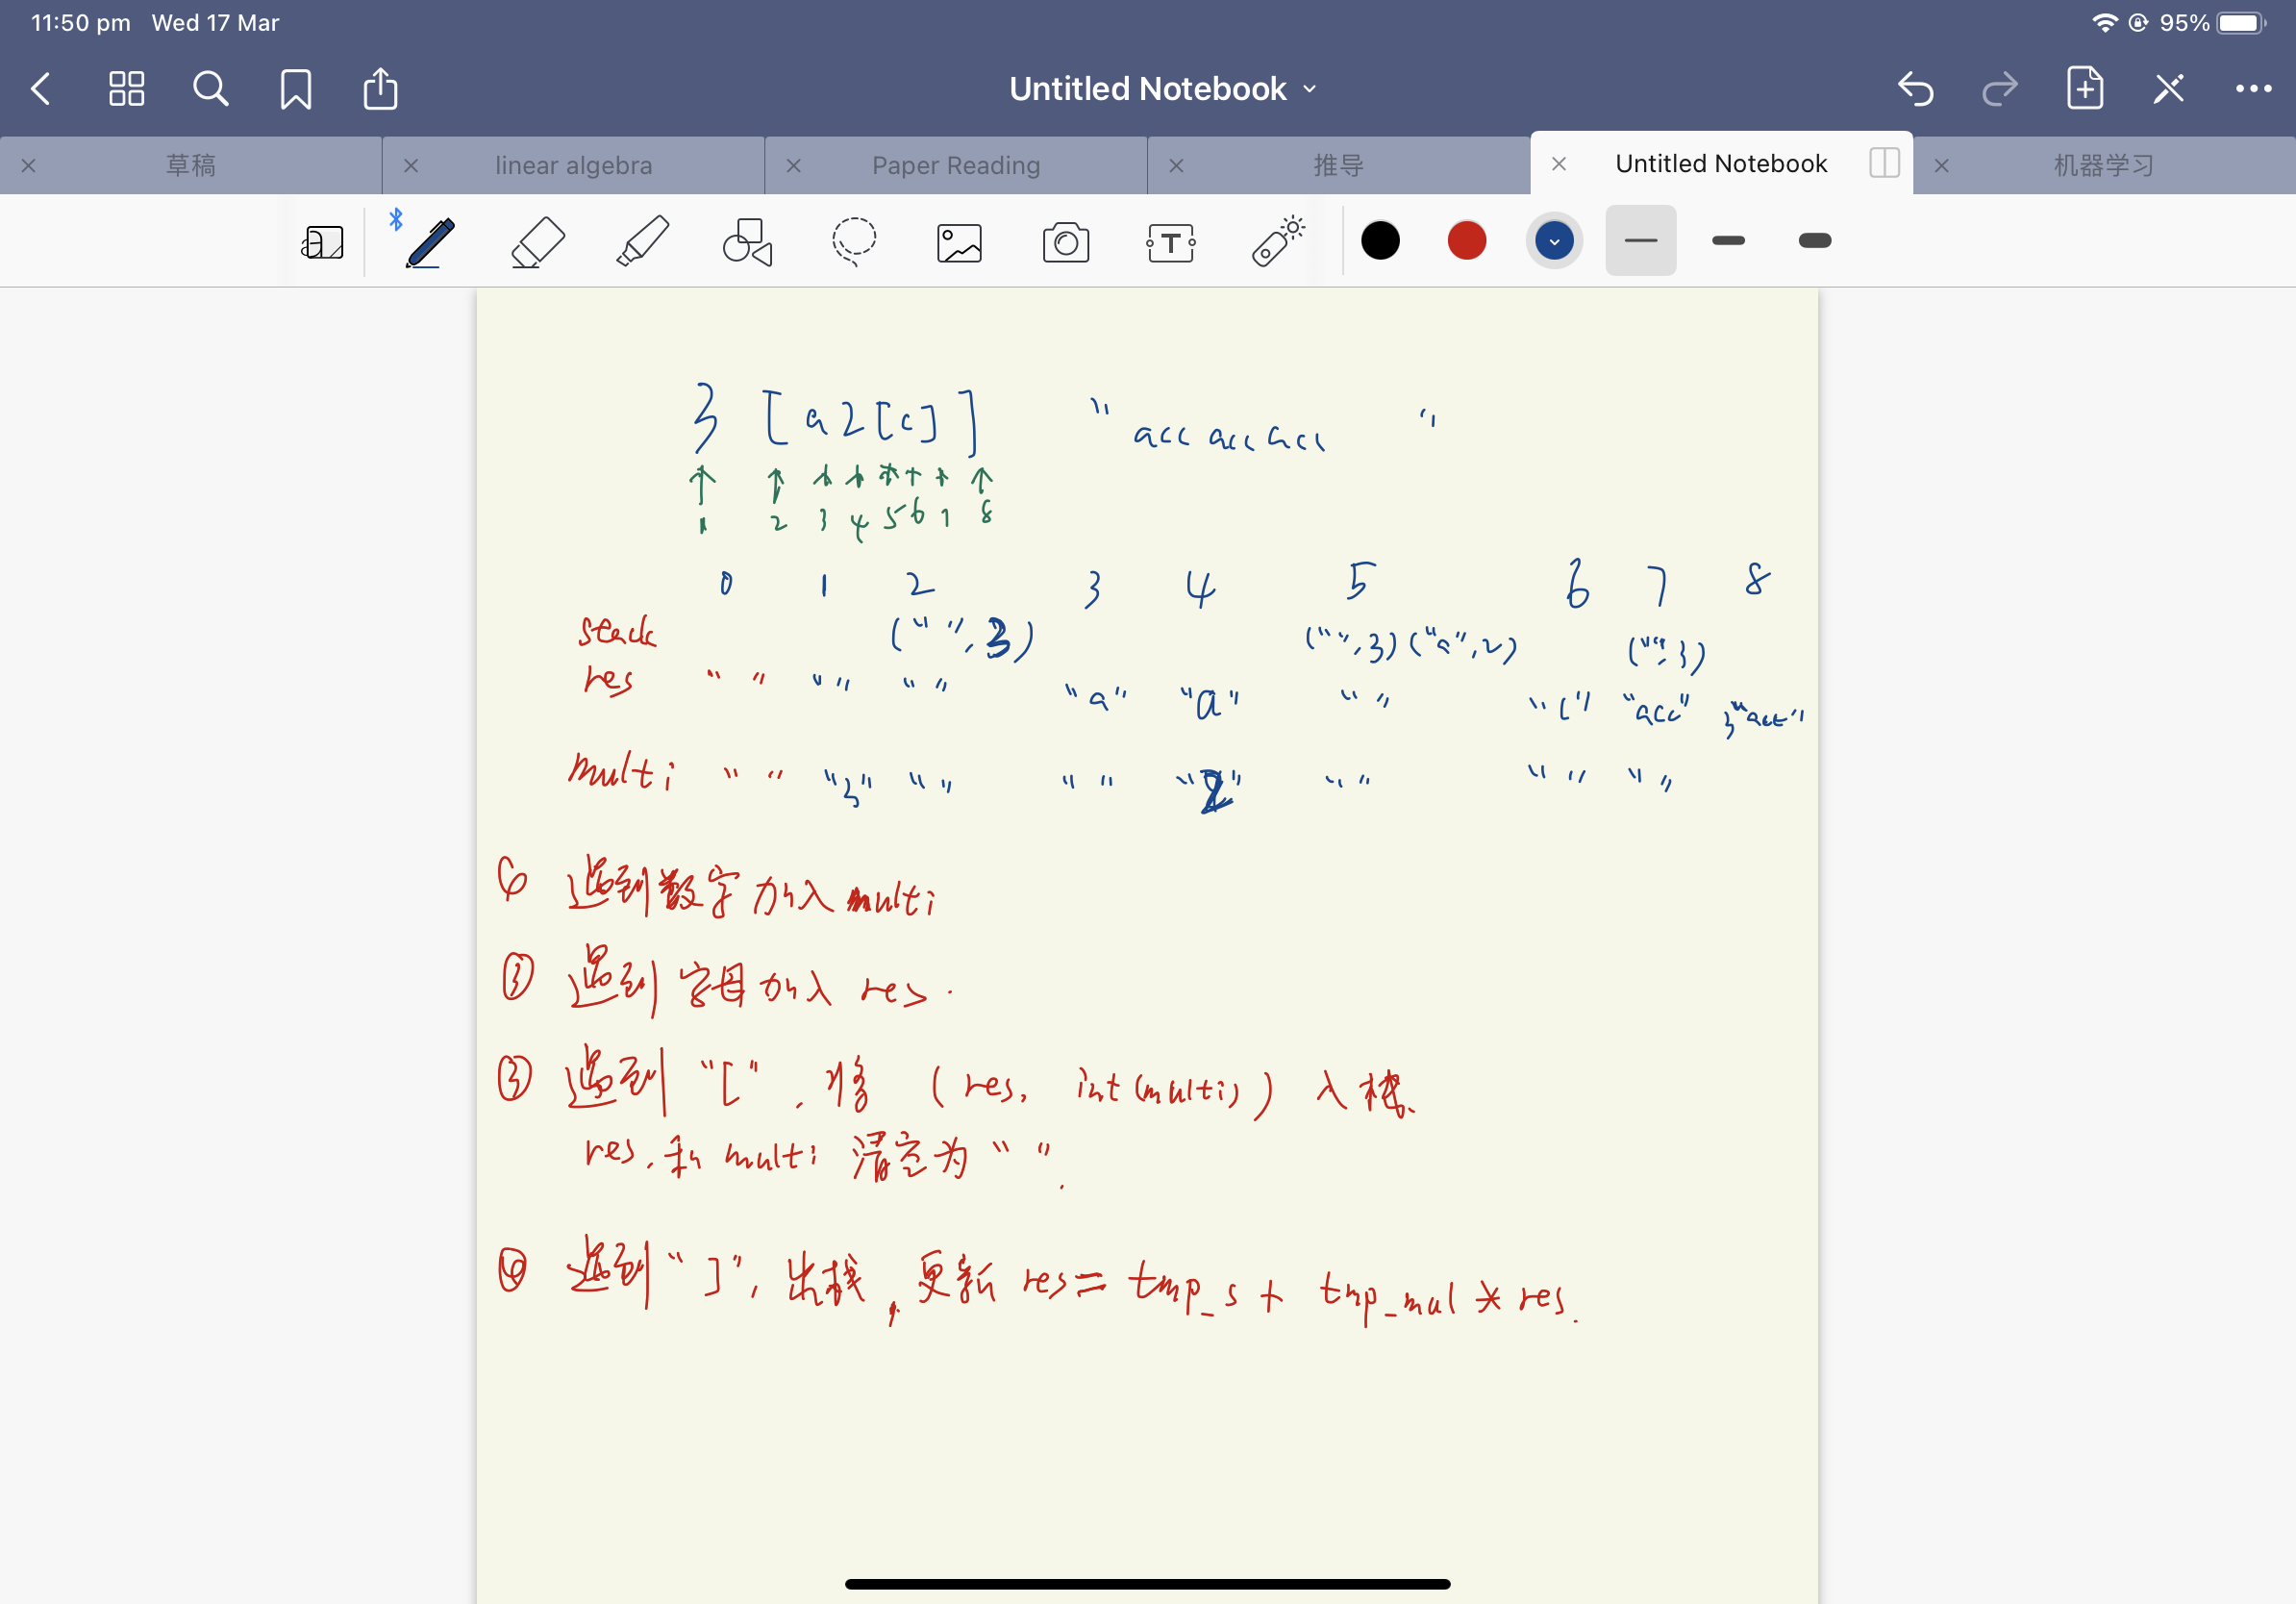 11:50 pm Wed 17 Mar 95%
Untitled Notebook
草稿 linear algebra Paper Reading 推导 Untitled Notebook 机器学习
3 [a2[c]] "acc acc acc"
1 2 3 4 5 6 7 8
0 1 2 3 4 5 6 7 8
stack ("", 3) ("", 3) ("a", 2) ("", 3)
res "" "" "" "a" "a" "" "c" "acc" 3"acc"
multi "" "3" "" "" "2" "" "" ""
遇到数字加入 multi
遇到字母加入 res.
③ 遇到 "[", 将 (res, int(multi)) 入栈.
res, 和 multi 清空为 "".
④ 遇到 "]", 出栈, 更新 res = tmp_s + tmp_mul * res.